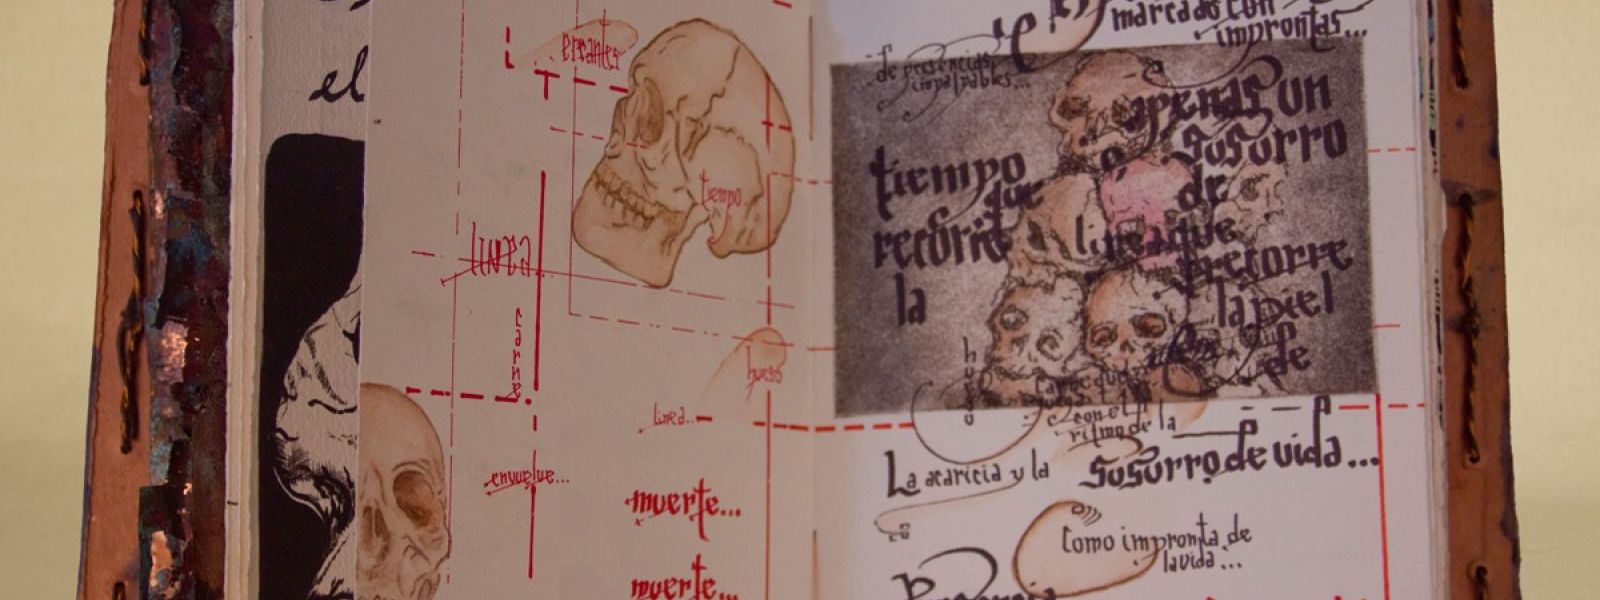 el
errantes
tiempo
linea
carne
hueso
linea...
envuelve...
muerte...
muerte...
marcado con
improntas...
de presencias
impalpables...
apenas un
susurro
de
tiempo
que
recorre
la
linea que
recorre
la piel
de
hueso
con el
ritmo de la
La acaricia y la
susurro de vida...
Como impronta de
la vida...